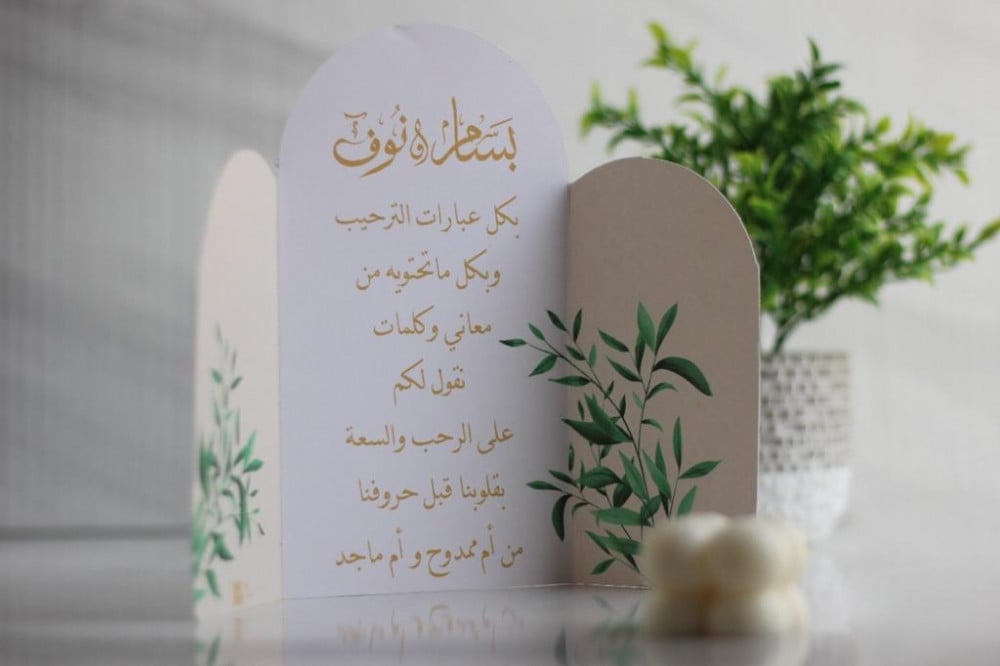 بسام و نوف
بكل عبارات الترحيب
وبكل ماتحتويه من
معاني وكلمات
نقول لكم
على الرحب والسعة
بقلوبنا قبل حروفنا
من أم ممدوح و أم ماجد